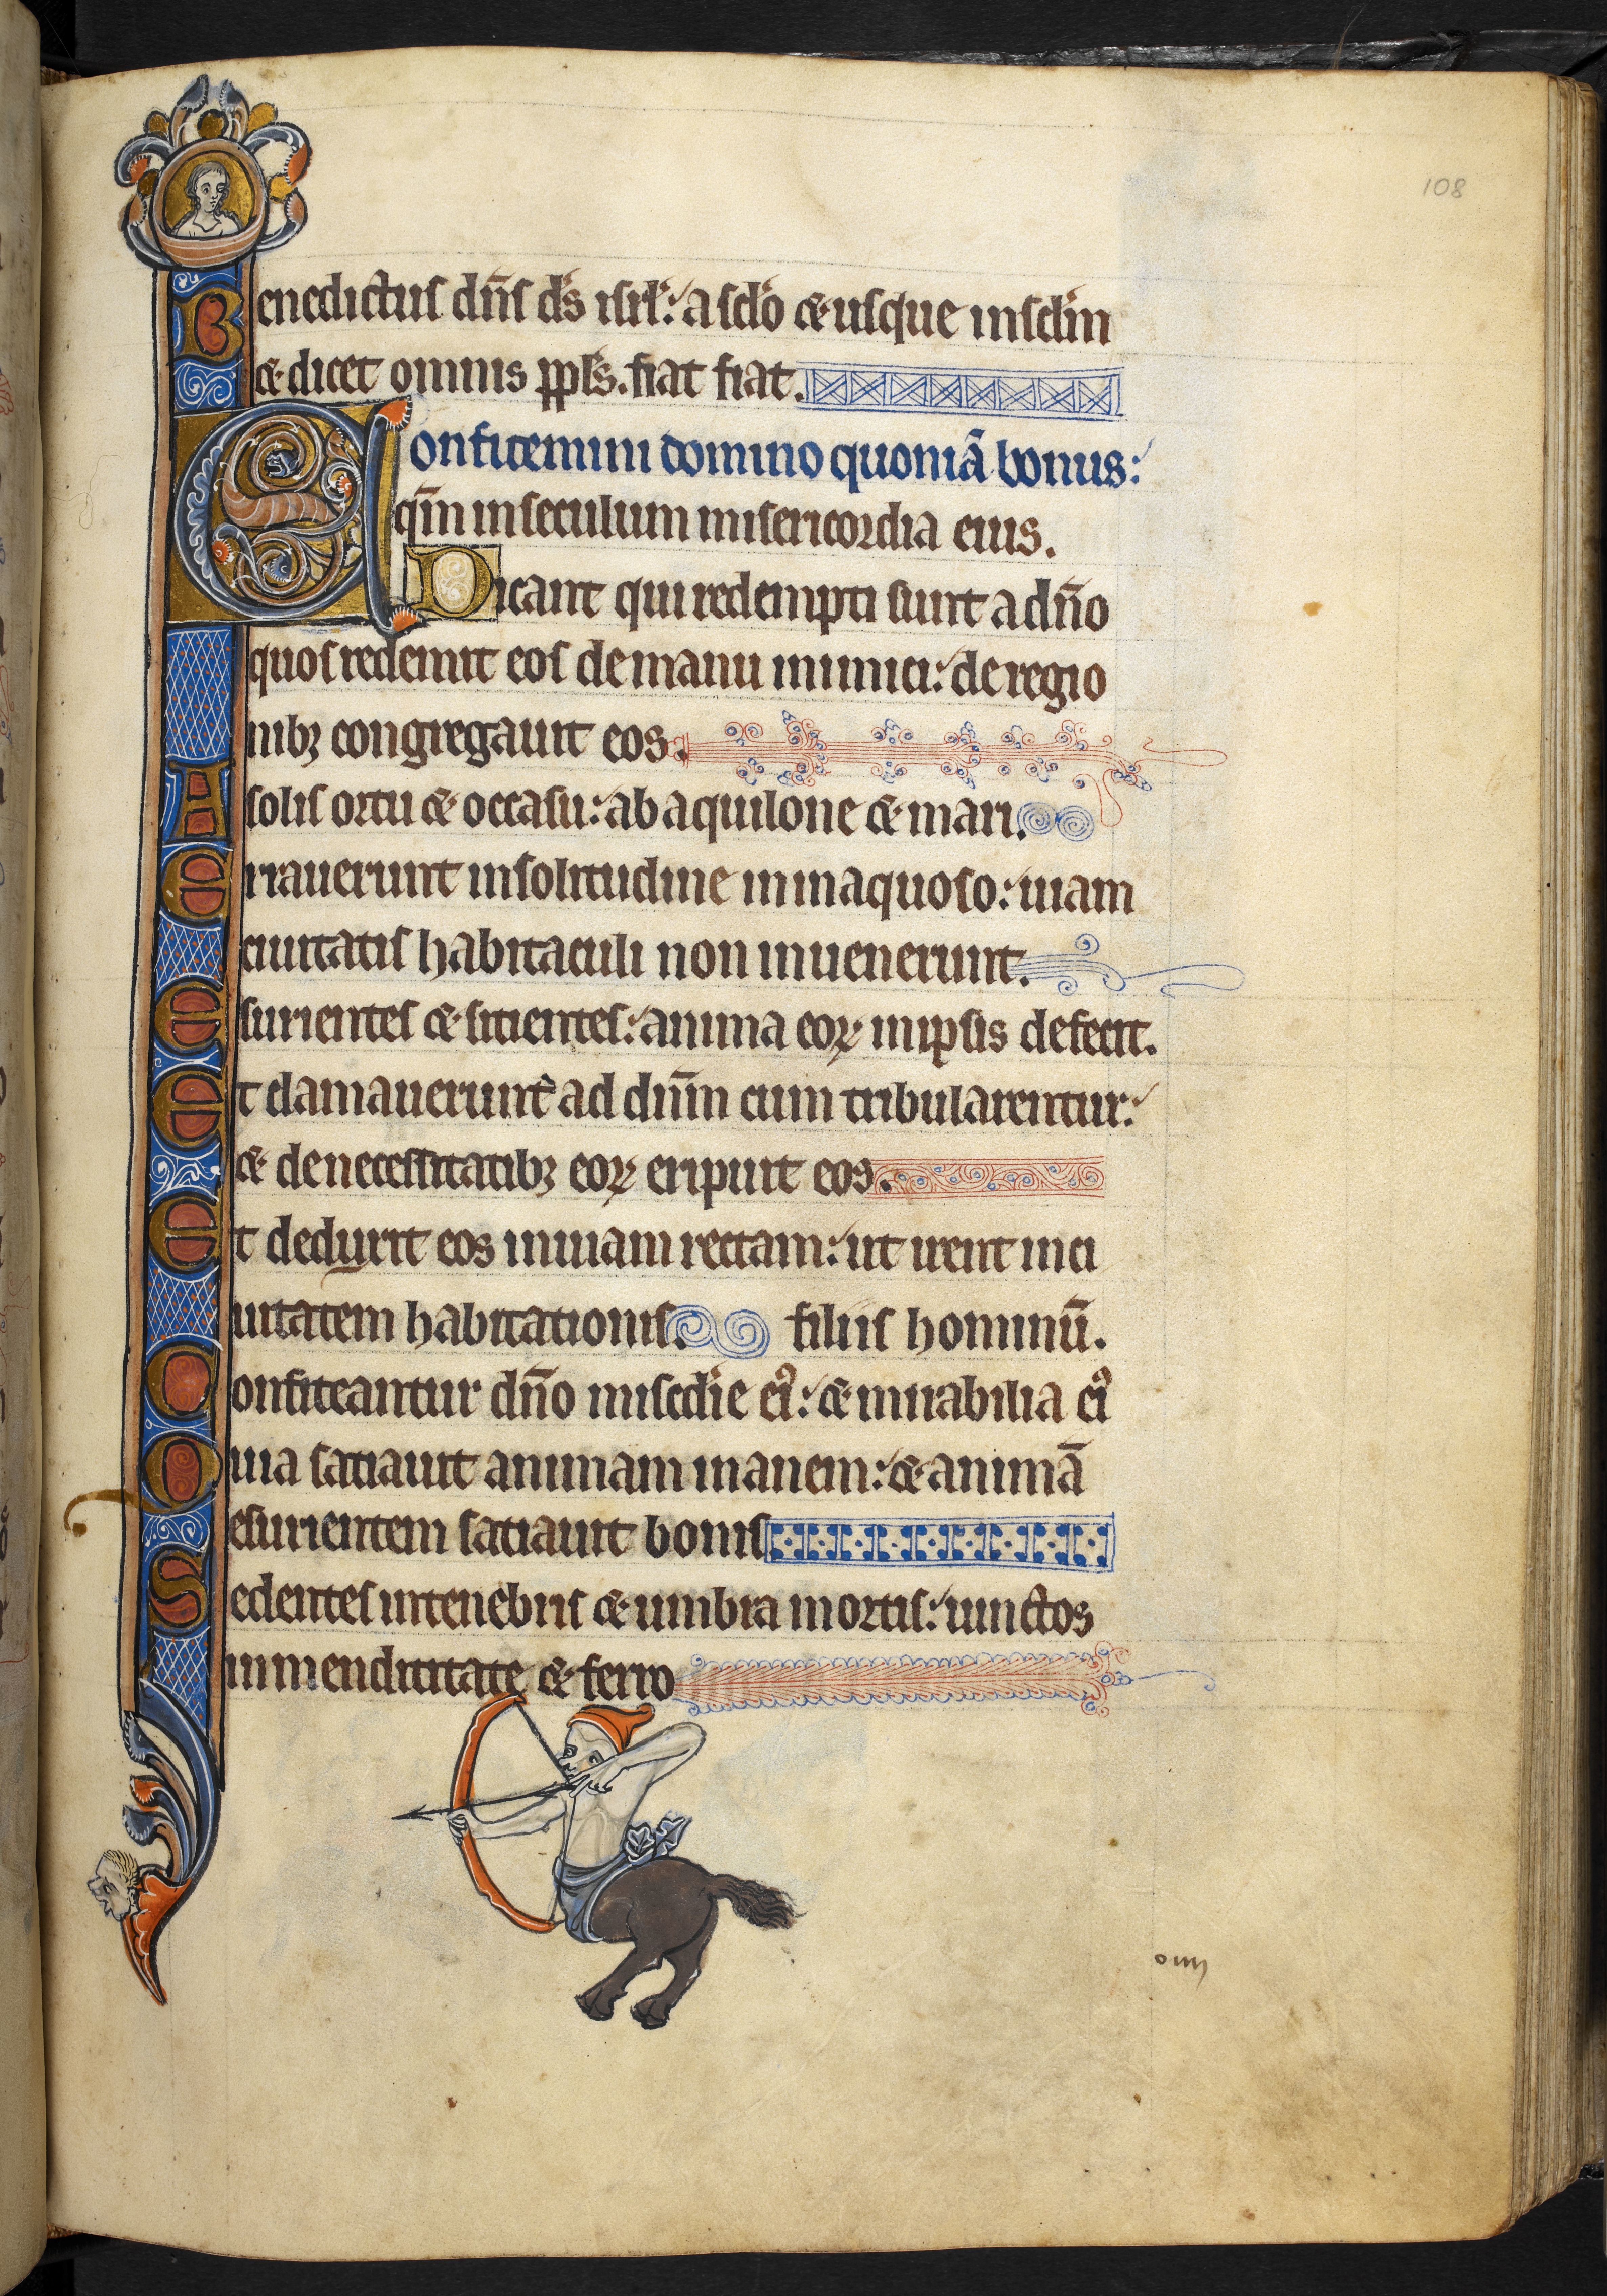 108
Benedictus dn̄s ds̄ isrl̄: a scl̄o & usque in scl̄m
& dicet omnis ppl̄s. fiat fiat.
Confitemini domino quoniā bonus:
qm̄ in seculum misericordia eius.
Dicant qui redempti sunt a dn̄o
quos redemit eos de manu inimici: de regio
nibꝫ congregauit eos.
A solis ortu & occasu: ab aquilone & mari.
Errauerunt in solitudine in inaquoso: uiam
ciuitatis habitaculi non inuenerunt.
Esurientes & sitientes: anima eoꝝ in ipsis defecit.
Et clamauerunt ad dn̄m cum tribularentur:
& de necessitatibꝫ eoꝝ eripuit eos.
Et deduxit eos in uiam rectam: ut irent in ci
uitatem habitationis. filiis hominū.
Confiteantur dn̄o miscd̄ie eiꝰ: & mirabilia eiꝰ
Quia satiauit animam inanem: & animā
esurientem satiauit bonis
Sedentes in tenebris & umbra mortis: iunctos
in mendicitate & ferro